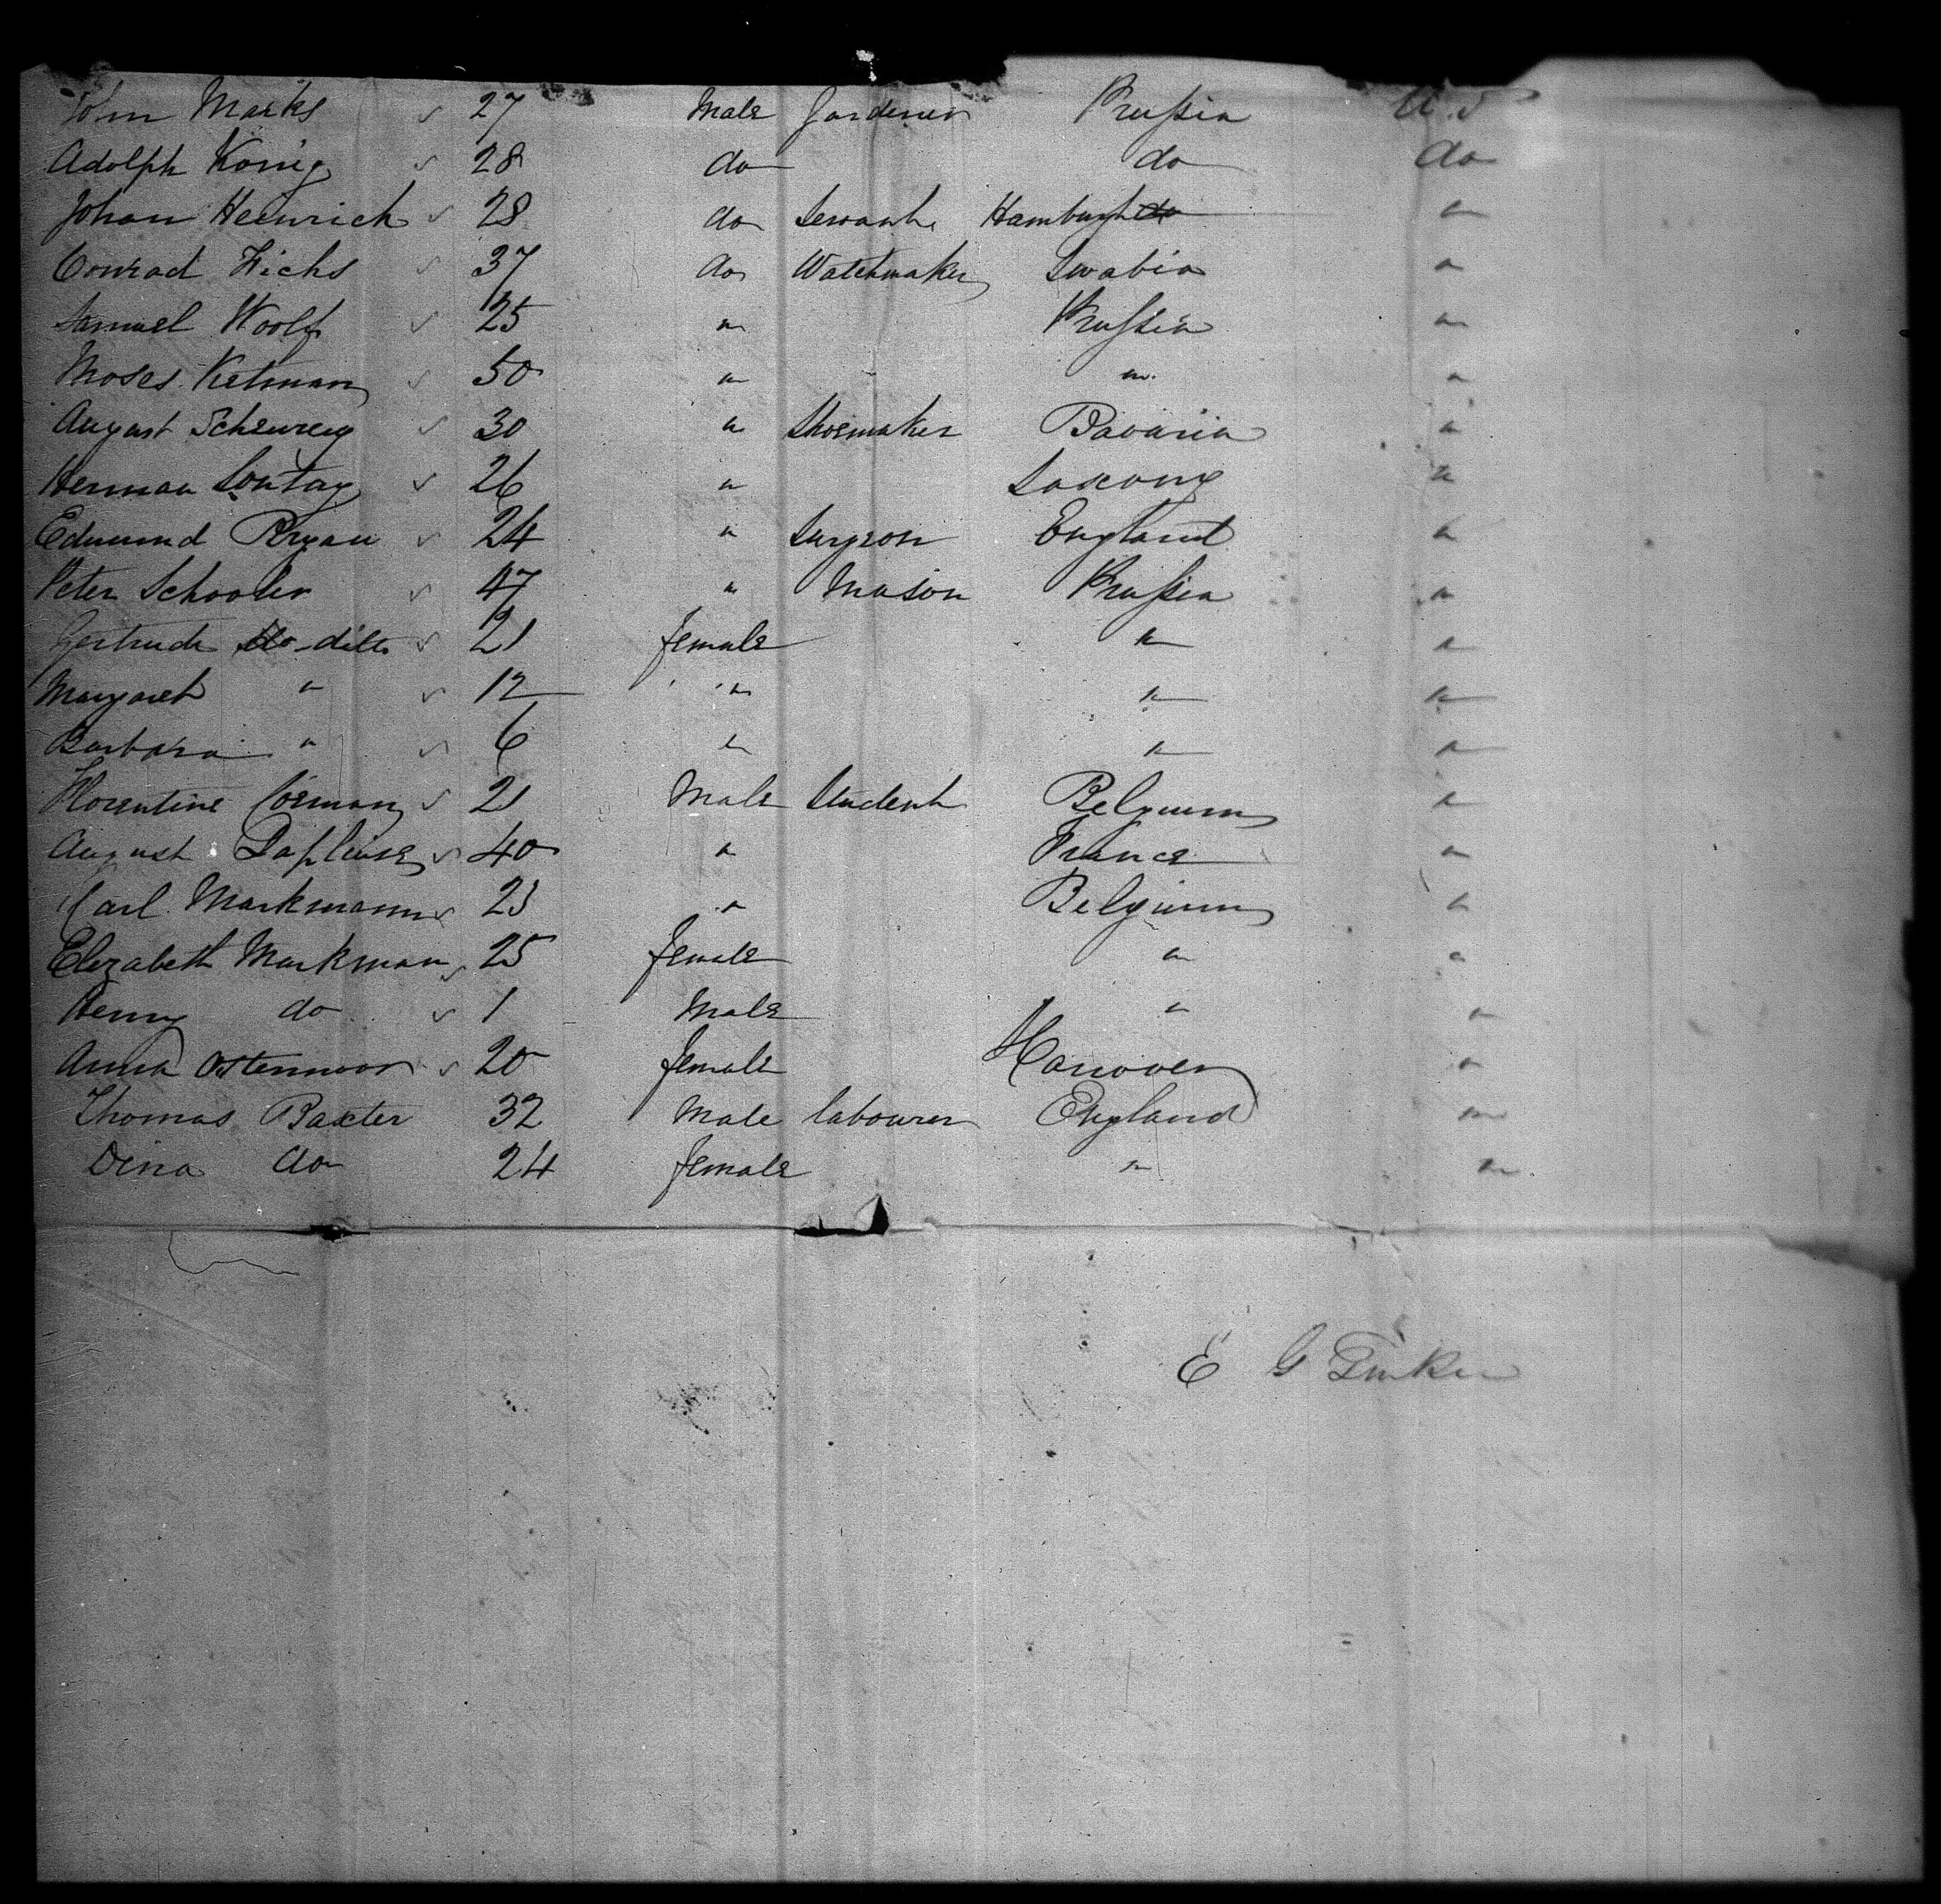 John Marks 27 Male Gardener Prussia U.S
Adolph Konig 28 do do do
Johan Heinrich 28 do Servant Hamburgh do "
Conrad Hichs 37 do Watchmaker Swabia "
Samuel Woolf 25 " Prussia "
Moses Ketman 50 " " "
August 30 " Shoemaker Bavaria "
Herman Sontag 26 " Saxony "
Edmund Bryan 24 " Surgeon England "
Peter Schooler 47 " Mason Prussia "
Gertrude do ditto 21 female " "
Margaret " 12 " " "
Barbara " 6 " " "
Florentine Coeman 21 Male Student Belgium "
August 40 " France "
Carl Markmann 23 " Belgium "
Elizabeth Markman 25 female " "
Henry do 1 Male " "
Anna Ostermoor 20 female Hanover "
Thomas Baxter 32 Male labourer England "
Dina do 24 female " "
E G Tinker